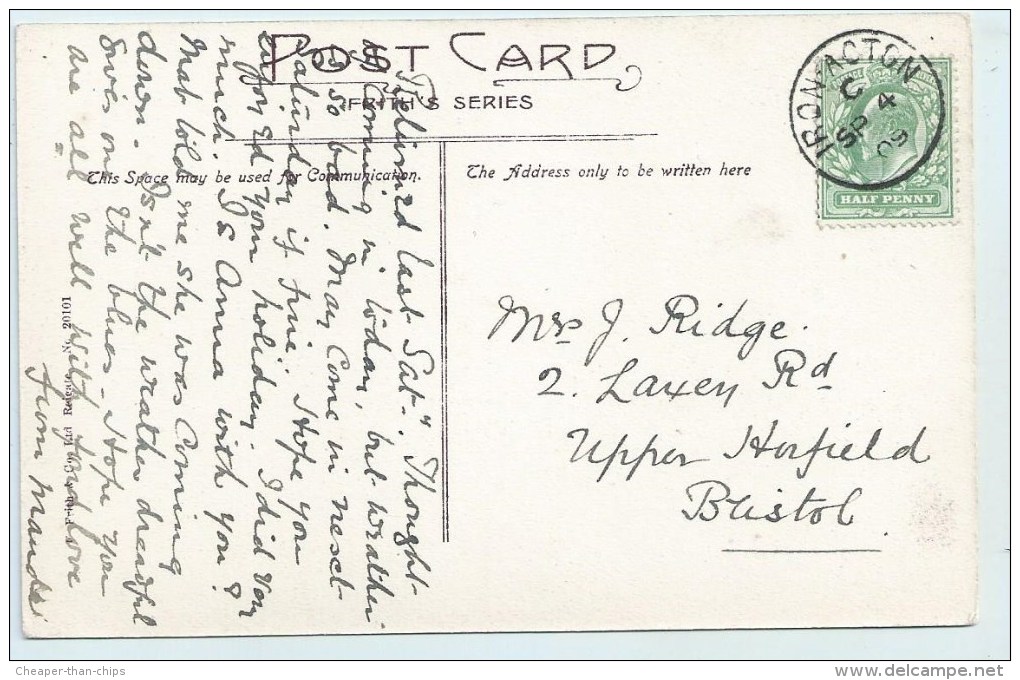 POST CARD
FRITH'S SERIES
This Space may be used for Communication.
The Address only to be written here
IRON ACTON
C
SP 4
HALF PENNY
Mrs J. Ridge.
2. Laxey Rd
Upper Horfield
Bristol
Returned last Sat". Thought
of Coming in today, but weather
is so bad. May Come in next
Saturday if fine. Hope you
enjoyed your holiday. I did very
much. Is Anna with you?
Mab told me she was Coming
down. Isn't the weather dreadful
Gives one the blues – Hope you
are all well With fond love
from Maude
Reigate, No. 20101
Cheaper-than-chips
www.delcampe.net